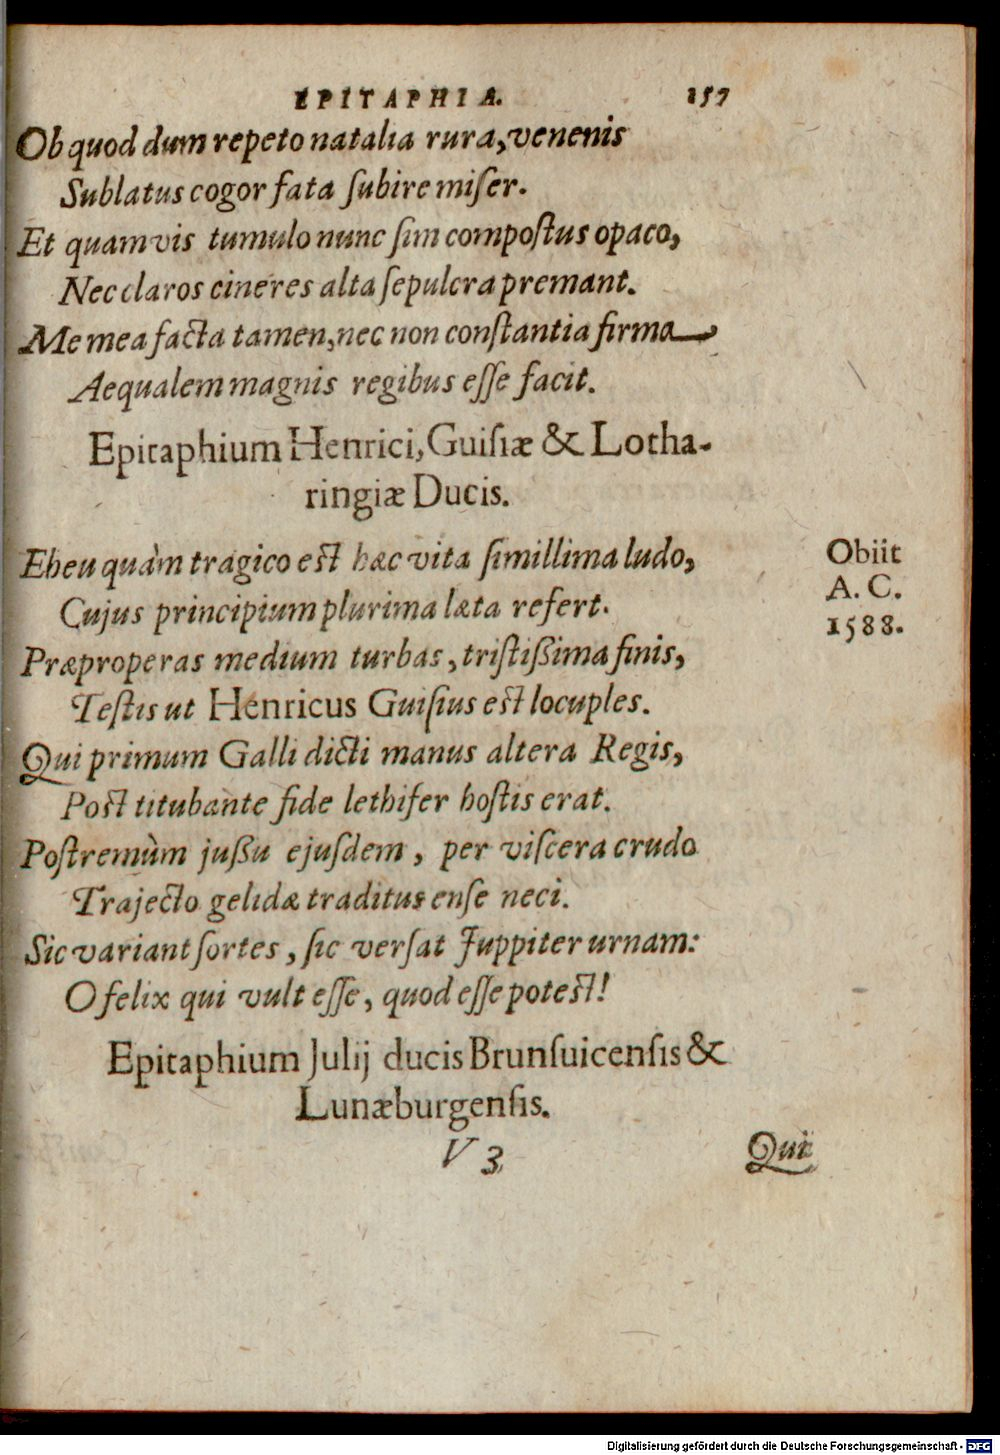 EPITAPHIA. 157
Ob quod dum repeto natalia rura, venenis
Sublatus cogor fata ſubire miſer.
Et quamvis tumulo nunc ſim compoſtus opaco,
Nec claros cineres alta ſepulcra premant.
Me mea facta tamen, nec non conſtantia firma
Aequalem magnis regibus eſſe facit.
Epitaphium Henrici, Guiſiæ & Lotha-
ringiæ Ducis.
Eheu quàm tragico eſt hæc vita ſimillima ludo,
Cujus principium plurima læta refert.
Præproperas medium turbas, triſtißima finis,
Teſtis ut Henricus Guiſius eſt locuples.
Qui primum Galli dicti manus altera Regis,
Poſt titubante fide lethifer hoſtis erat.
Poſtremùm jußu ejuſdem, per viſcera crudo
Trajecto gelidæ traditus enſe neci.
Sic variant ſortes, ſic verſat Juppiter urnam:
O felix qui vult eſſe, quod eſſe poteſt!
Obiit
A. C.
1588.
Epitaphium Julij ducis Brunſuicenſis &
Lunæburgenſis.
V 3
Qui
Digitalisierung gefördert durch die Deutsche Forschungsgemeinschaft - DFG